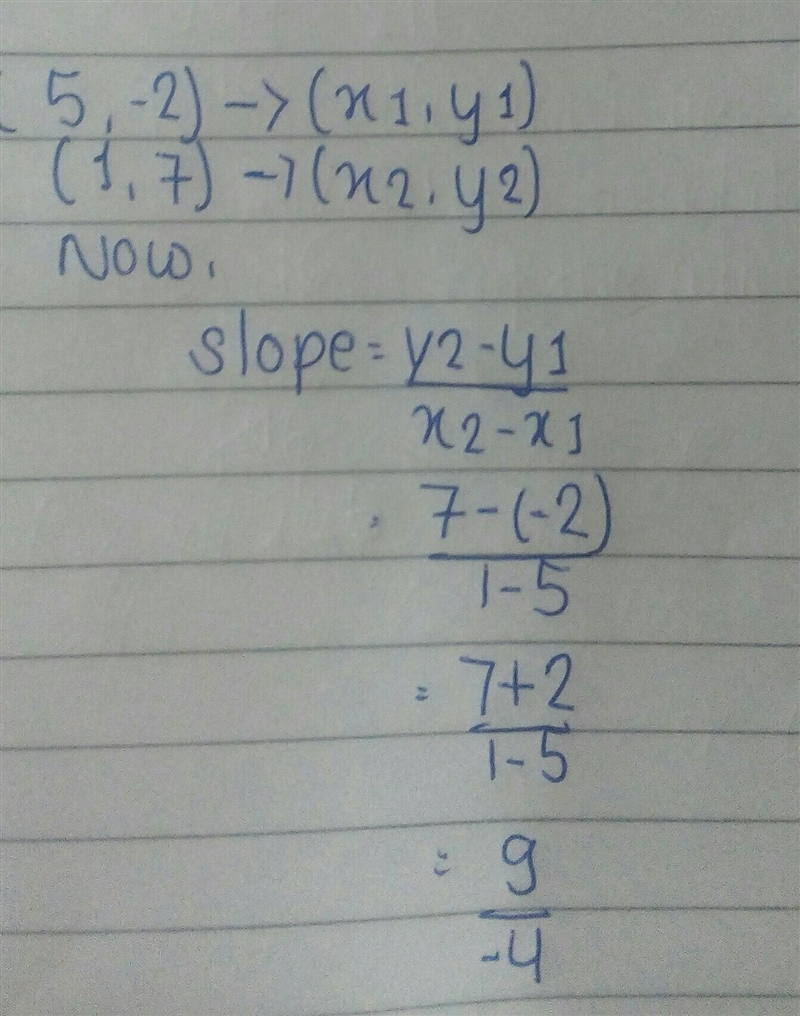 (5, -2) -> (x1, y1)
(1, 7) -> (x2, y2)
Now,
slope = y2 - y1
x2 - x1
= 7 - (-2)
1 - 5
= 7 + 2
1 - 5
= 9
-4